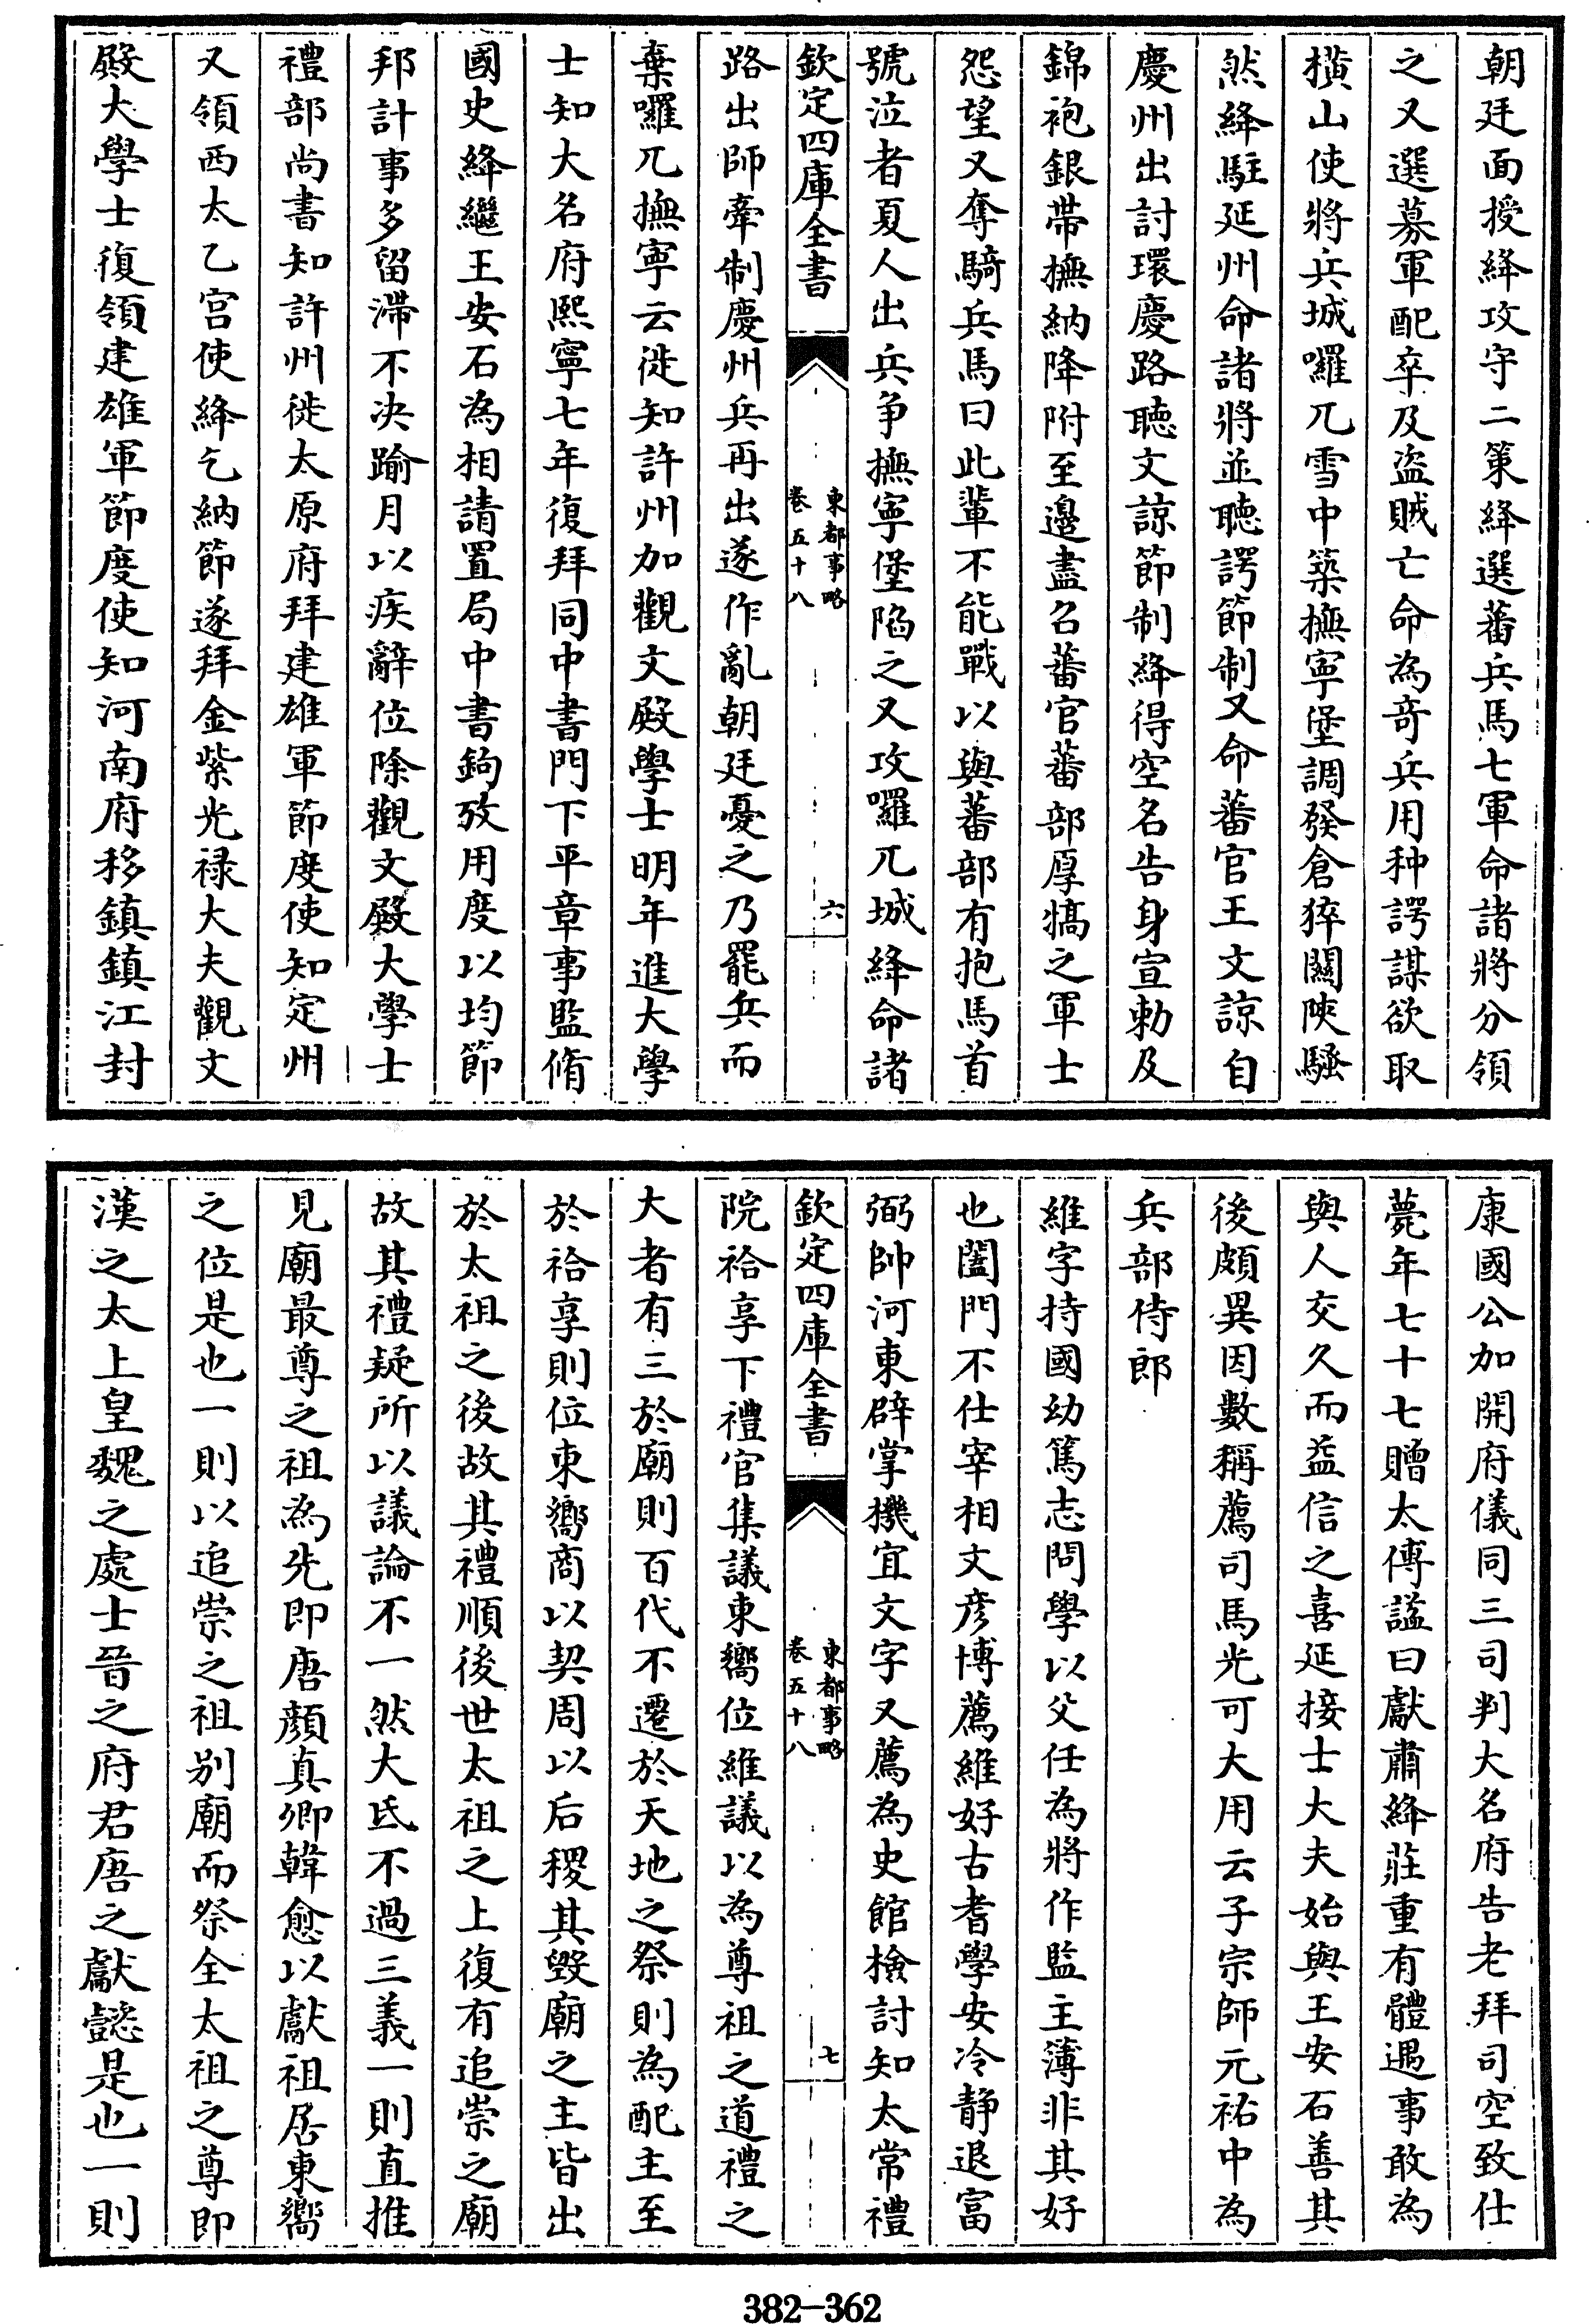 朝廷面授絳攻守二策絳選蕃兵馬七軍命諸將分領
之又選募軍配卒及盜賊亡命為竒兵用种諤謀欲取
橫山使將兵城囉兀雪中築撫寧堡調發倉猝關陝騷
然絳駐延州命諸將並聽諤節制又命蕃官王文諒自
慶州出討環慶路聽文諒節制絳得空名告身宣勅及
錦袍銀帶撫納降附至邊盡召蕃官蕃部厚犒之軍士
怨望又奪騎兵馬曰此輩不能戰以與蕃部有抱馬首
號泣者夏人出兵爭撫寧堡陷之又攻囉兀城絳命諸
欽定四庫全書
東都事略
卷五十八
六
路出師牽制慶州兵再出遂作亂朝廷憂之乃罷兵而
棄囉兀撫寧云徙知許州加觀文殿學士明年進大學
士知大名府熙寧七年復拜同中書門下平章事監脩
國史絳繼王安石為相請置局中書鉤攷用度以均節
邦計事多留滯不決踰月以疾辭位除觀文殿大學士
禮部尚書知許州徙太原府拜建雄軍節度使知定州
又領西太乙宮使絳乞納節遂拜金紫光祿大夫觀文
殿大學士復領建雄軍節度使知河南府移鎮鎮江封
康國公加開府儀同三司判大名府告老拜司空致仕
薨年七十七贈太傅諡曰獻肅絳莊重有體遇事敢為
與人交久而益信之喜延接士大夫始與王安石善其
後頗異因數稱薦司馬光可大用云子宗師元祐中為
兵部侍郎
維字持國幼篤志問學以父任為將作監主簿非其好
也闔門不仕宰相文彥博薦維好古耆學安泠靜退富
弼帥河東辟掌機宜文字又薦為史館檢討知太常禮
欽定四庫全書
東都事略
卷五十八
七
院祫享下禮官集議東嚮位維議以為尊祖之道禮之
大者有三於廟則百代不遷於天地之祭則為配主至
於祫享則位東嚮商以契周以后稷其毀廟之主皆出
於太祖之後故其禮順後世太祖之上復有追崇之廟
故其禮疑所以議論不一然大氐不過三義一則直推
見廟最尊之祖為先即唐顏真卿韓愈以獻祖居東嚮
之位是也一則以追崇之祖別廟而祭全太祖之尊即
漢之太上皇魏之處士晉之府君唐之獻懿是也一則
382-362